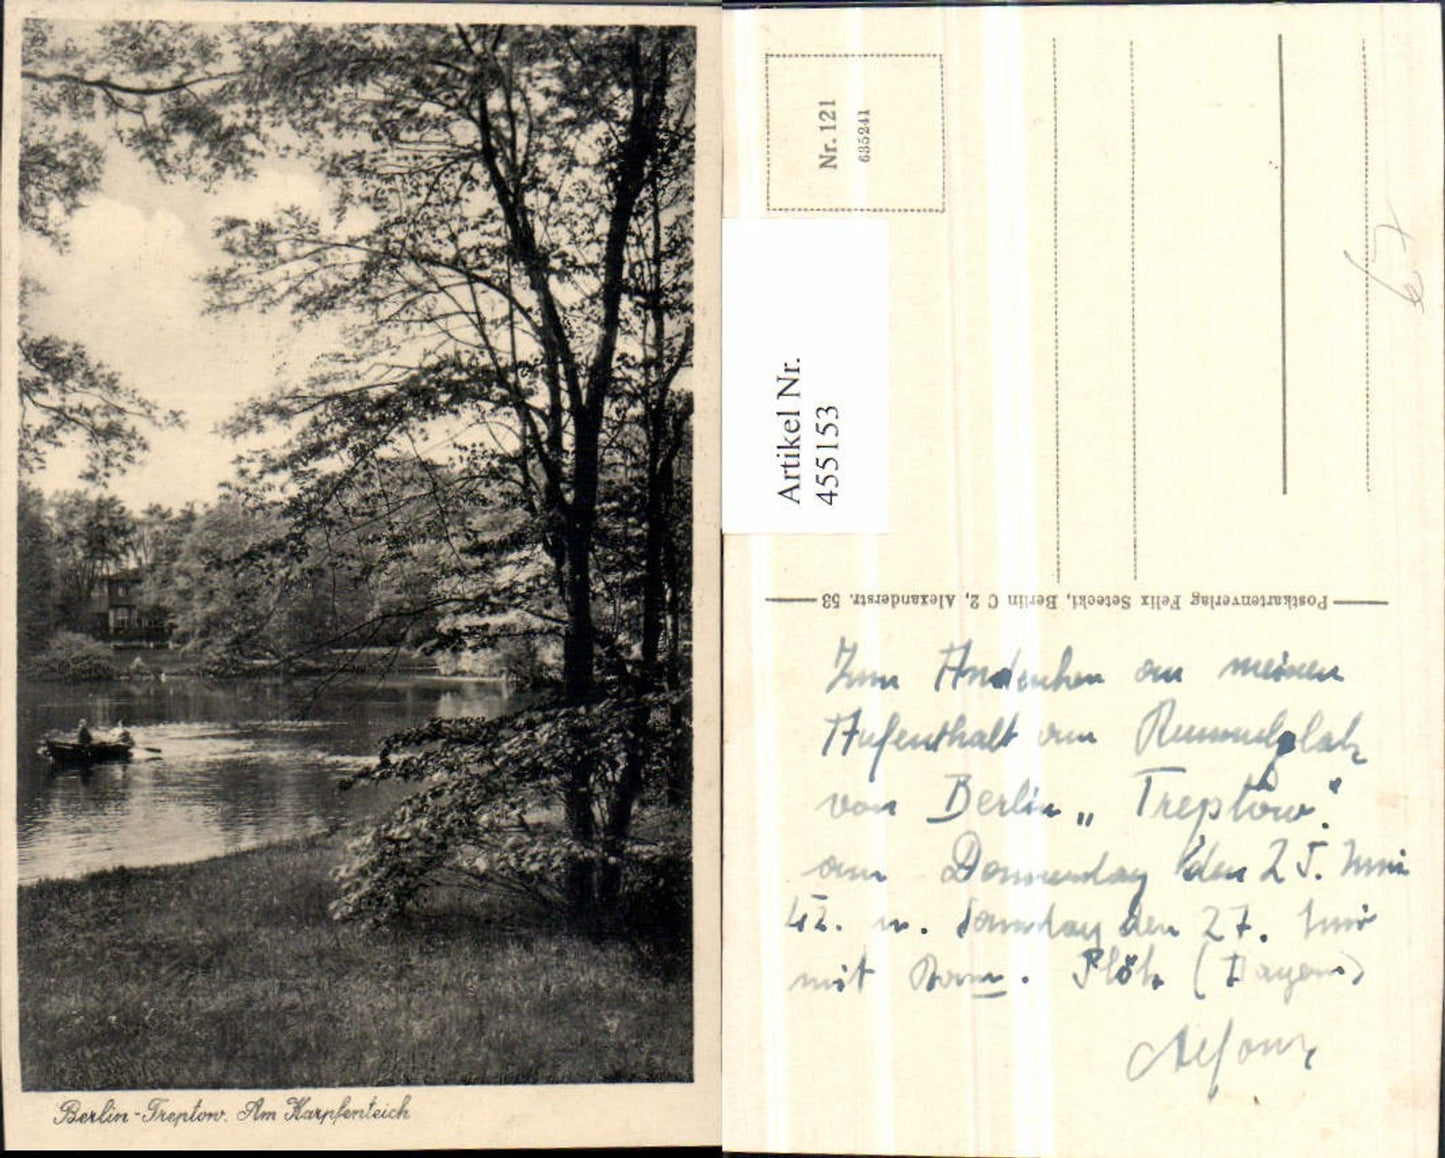 Berlin-Treptow. Am Karpfenteich
Nr. 121
635241
Artikel Nr.
4551153
67
Postkartenverlag Felix Setecki, Berlin C 2, Alexanderstr. 53
Zum Andenken an meinen
Aufenthalt am Rummelplatz
von Berlin „Treptow".
am Donnerstag den 25. Juni
42. u. Samstag den 27. Juni
mit Kam. Plötz (Bayern)
Alfons